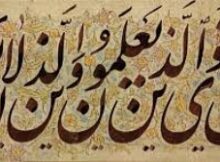 وي الذين يعلمون والذين لا